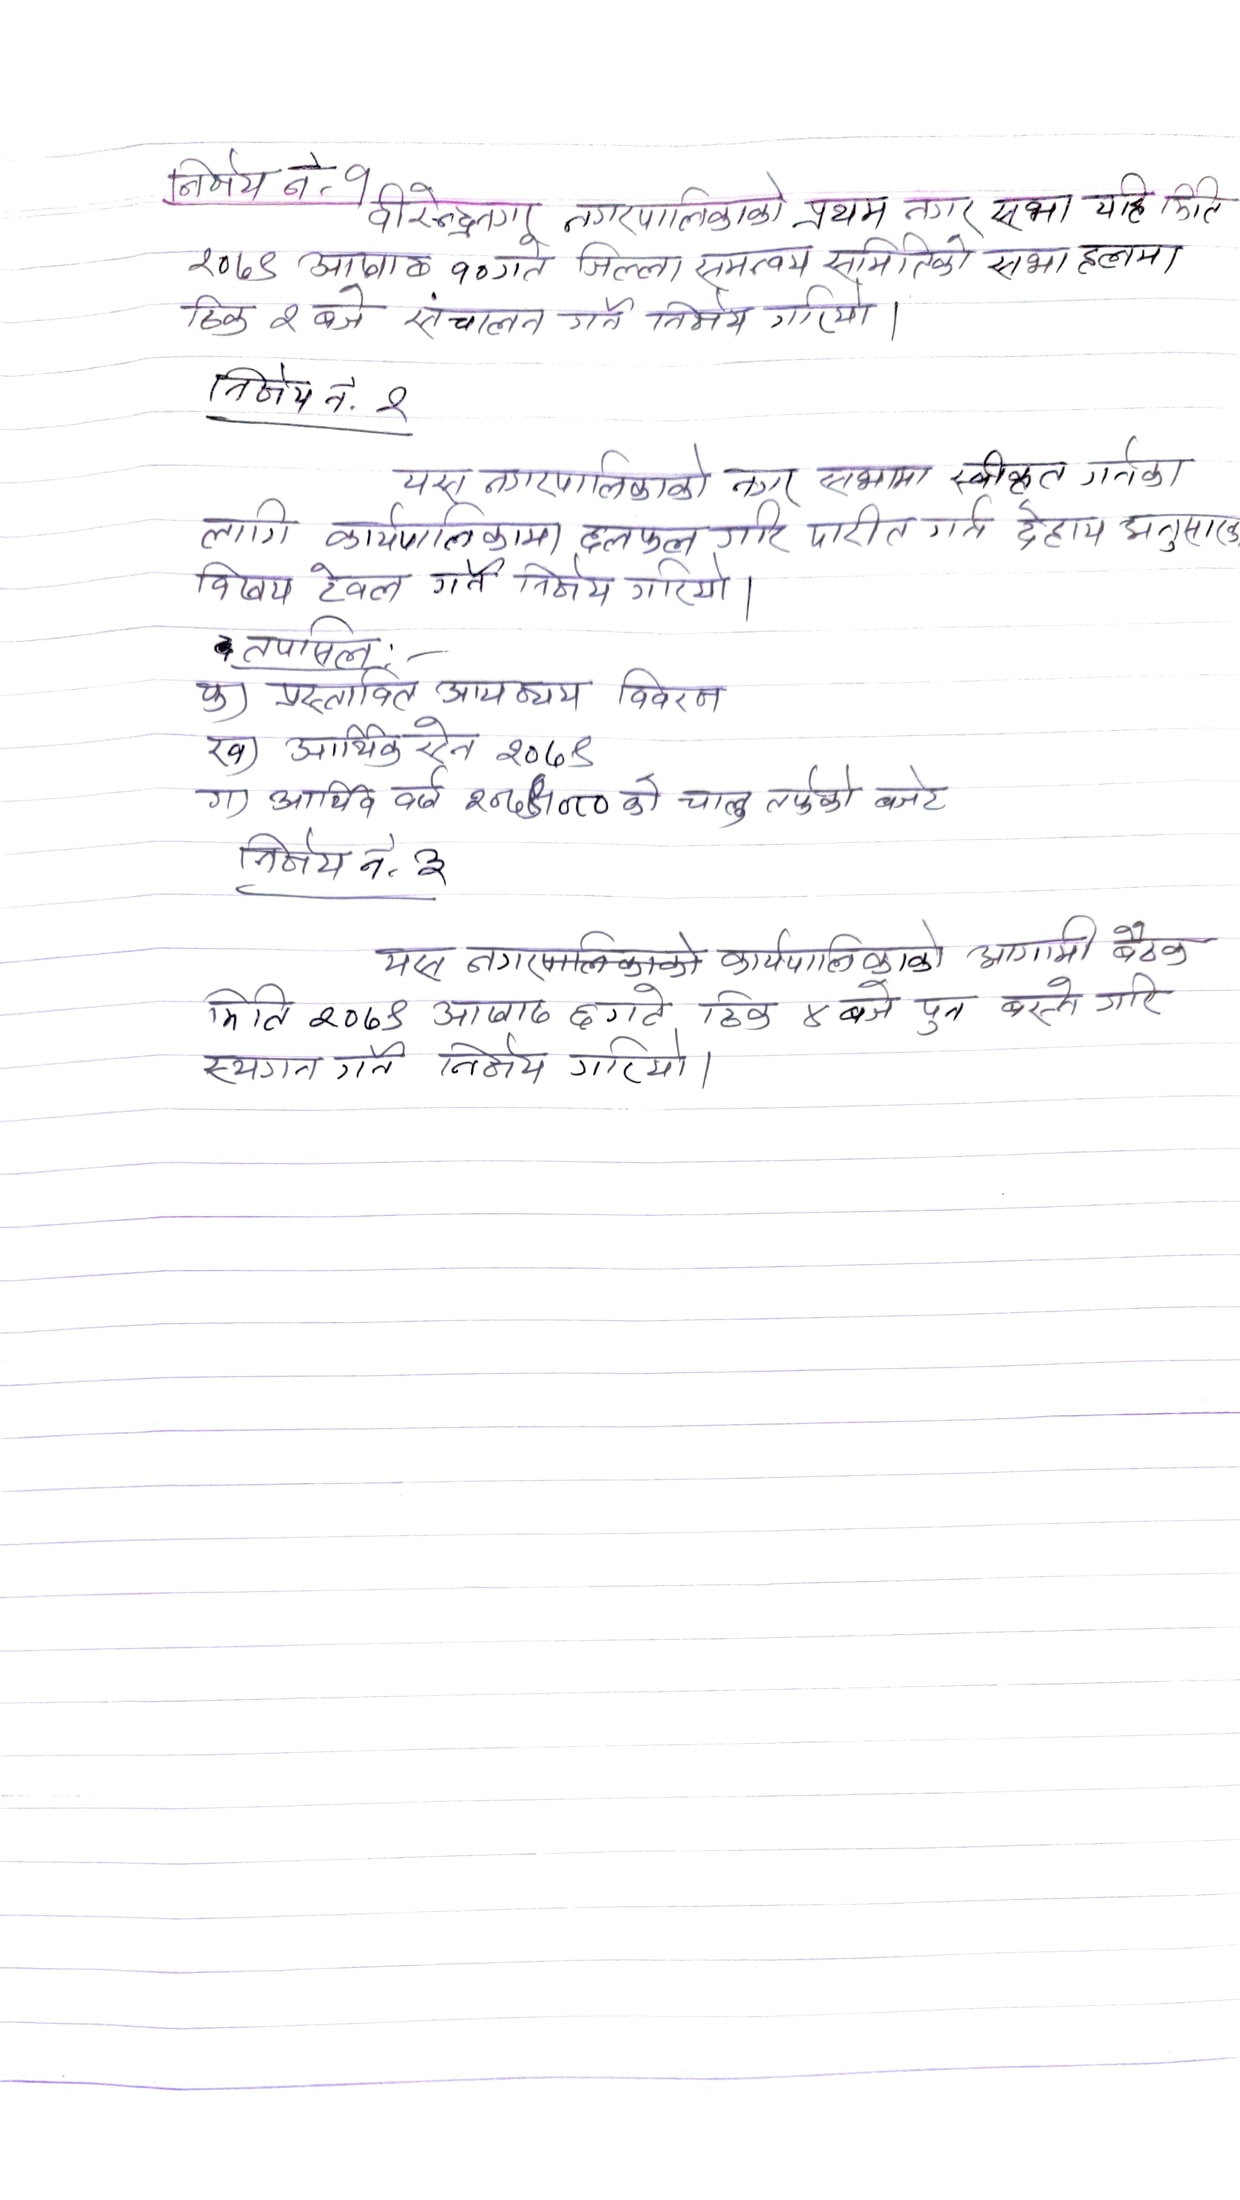 निर्णय नं. १
वीरेन्द्रनगर नगरपालिकाको प्रथम नगर सभा यहि मिति
२०७९ आषाढ १० गते जिल्ला समन्वय समितिको सभा हलमा
ठिक २ बजे संचालन गर्ने निर्णय गरियो।
निर्णय नं. २
यस नगरपालिकाको नगर सभामा स्वीकृत गर्नका
लागि कार्यपालिकामा छलफल गरि पारीत गर्न देहाय अनुसारका
विषय टेवल गर्ने निर्णय गरियो।
तपसिल :-
क) प्रस्तावित आयव्यय विवरण
ख) आर्थिक ऐन २०७९
ग) आर्थिक वर्ष २०७९/०८० को चालु तर्फको बजेट
निर्णय नं. ३
यस नगरपालिकाको कार्यपालिकाको आगामी बैठक
मिति २०७९ आषाढ ६ गते ठिक ४ बजे पुन बस्ने गरि
स्थगन गर्ने निर्णय गरियो।